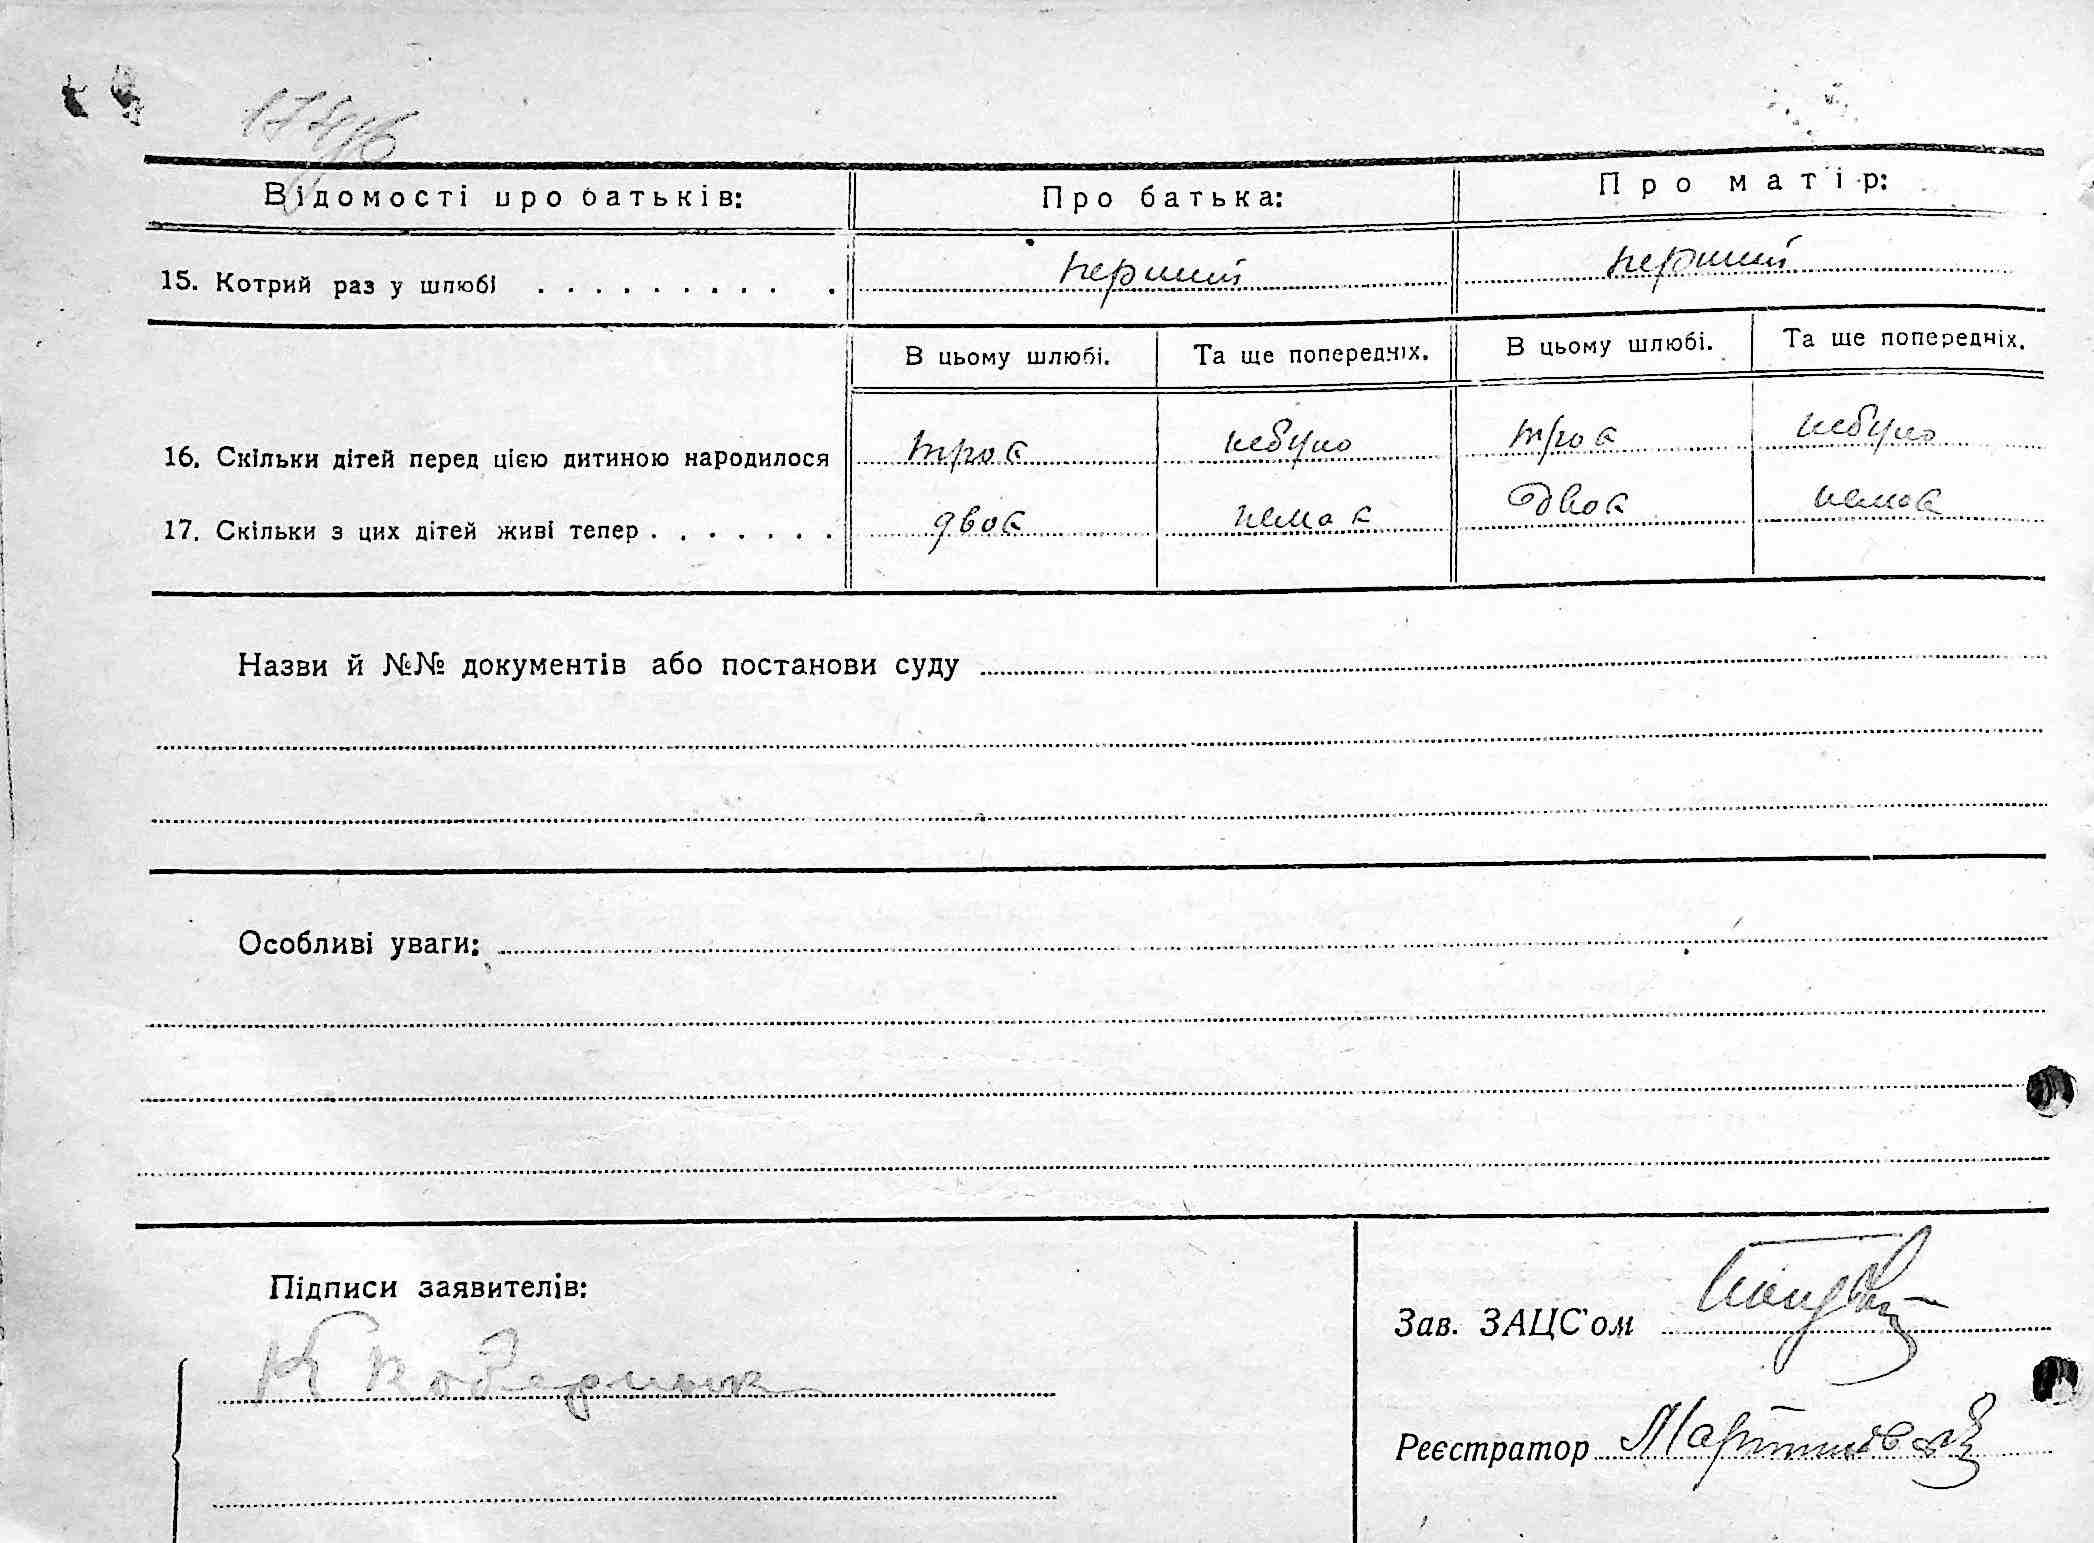 Відомості про батьків: Про батька: Про матір:
15. Котрий раз у шлюбі . . . . . . . . . . . перший перший
В цьому шлюбі. Та ще попередніх. В цьому шлюбі. Та ще попередніх.
16. Скільки дітей перед цією дитиною народилося троє небуло троє небуло
17. Скільки з цих дітей живі тепер . . . . . . . двоє немає двоє немає
Назви й №№ документів або постанови суду
Особливі уваги:
Підписи заявителів:
Зав. ЗАЦС'ом
Реєстратор